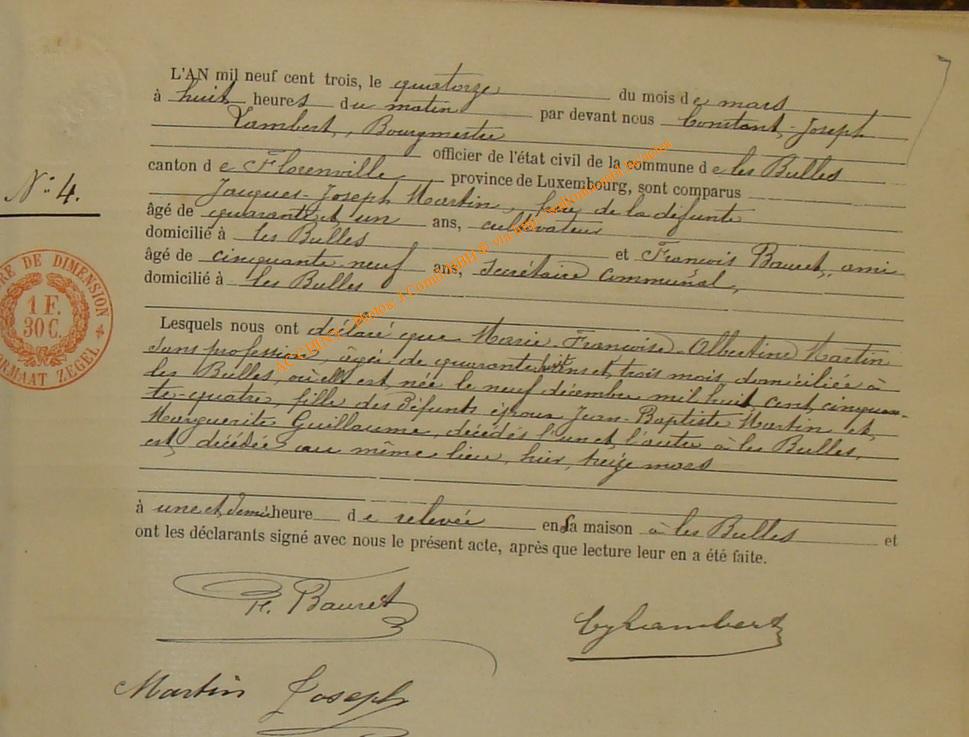 L'AN mil neuf cent trois, le quatorze du mois de mars
à huit heures du matin par devant nous Constant-Joseph
Lambert, Bourgmestre
officier de l'état civil de la commune de les Bulles
canton de Florenville province de Luxembourg, sont comparus
N° 4.
Jacques-Joseph Martin, frère de la défunte
âgé de quarante et un ans, cultivateur
domicilié à les Bulles et François Bauret, ami
âgé de cinquante neuf ans, secrétaire communal,
domicilié à les Bulles
TIMBRE DE DIMENSION
1 F.
30 C.
FORMAAT ZEGEL
Lesquels nous ont déclaré que Marie-Françoise-Albertine Martin
sans profession, âgée de quarante huit ans et trois mois, domiciliée à
les Bulles, où elle est née le neuf décembre mil huit cent cinquan-
te-quatre, fille des défunts époux Jean-Baptiste Martin et
Marguerite Guillaume, décédés l'un et l'autre à les Bulles,
est décédée au même lieu, hier, treize mars
à une et demie heure de relevée en sa maison à les Bulles et
ont les déclarants signé avec nous le présent acte, après que lecture leur en a été faite.
F. Bauret
CJLambert
Martin Joseph